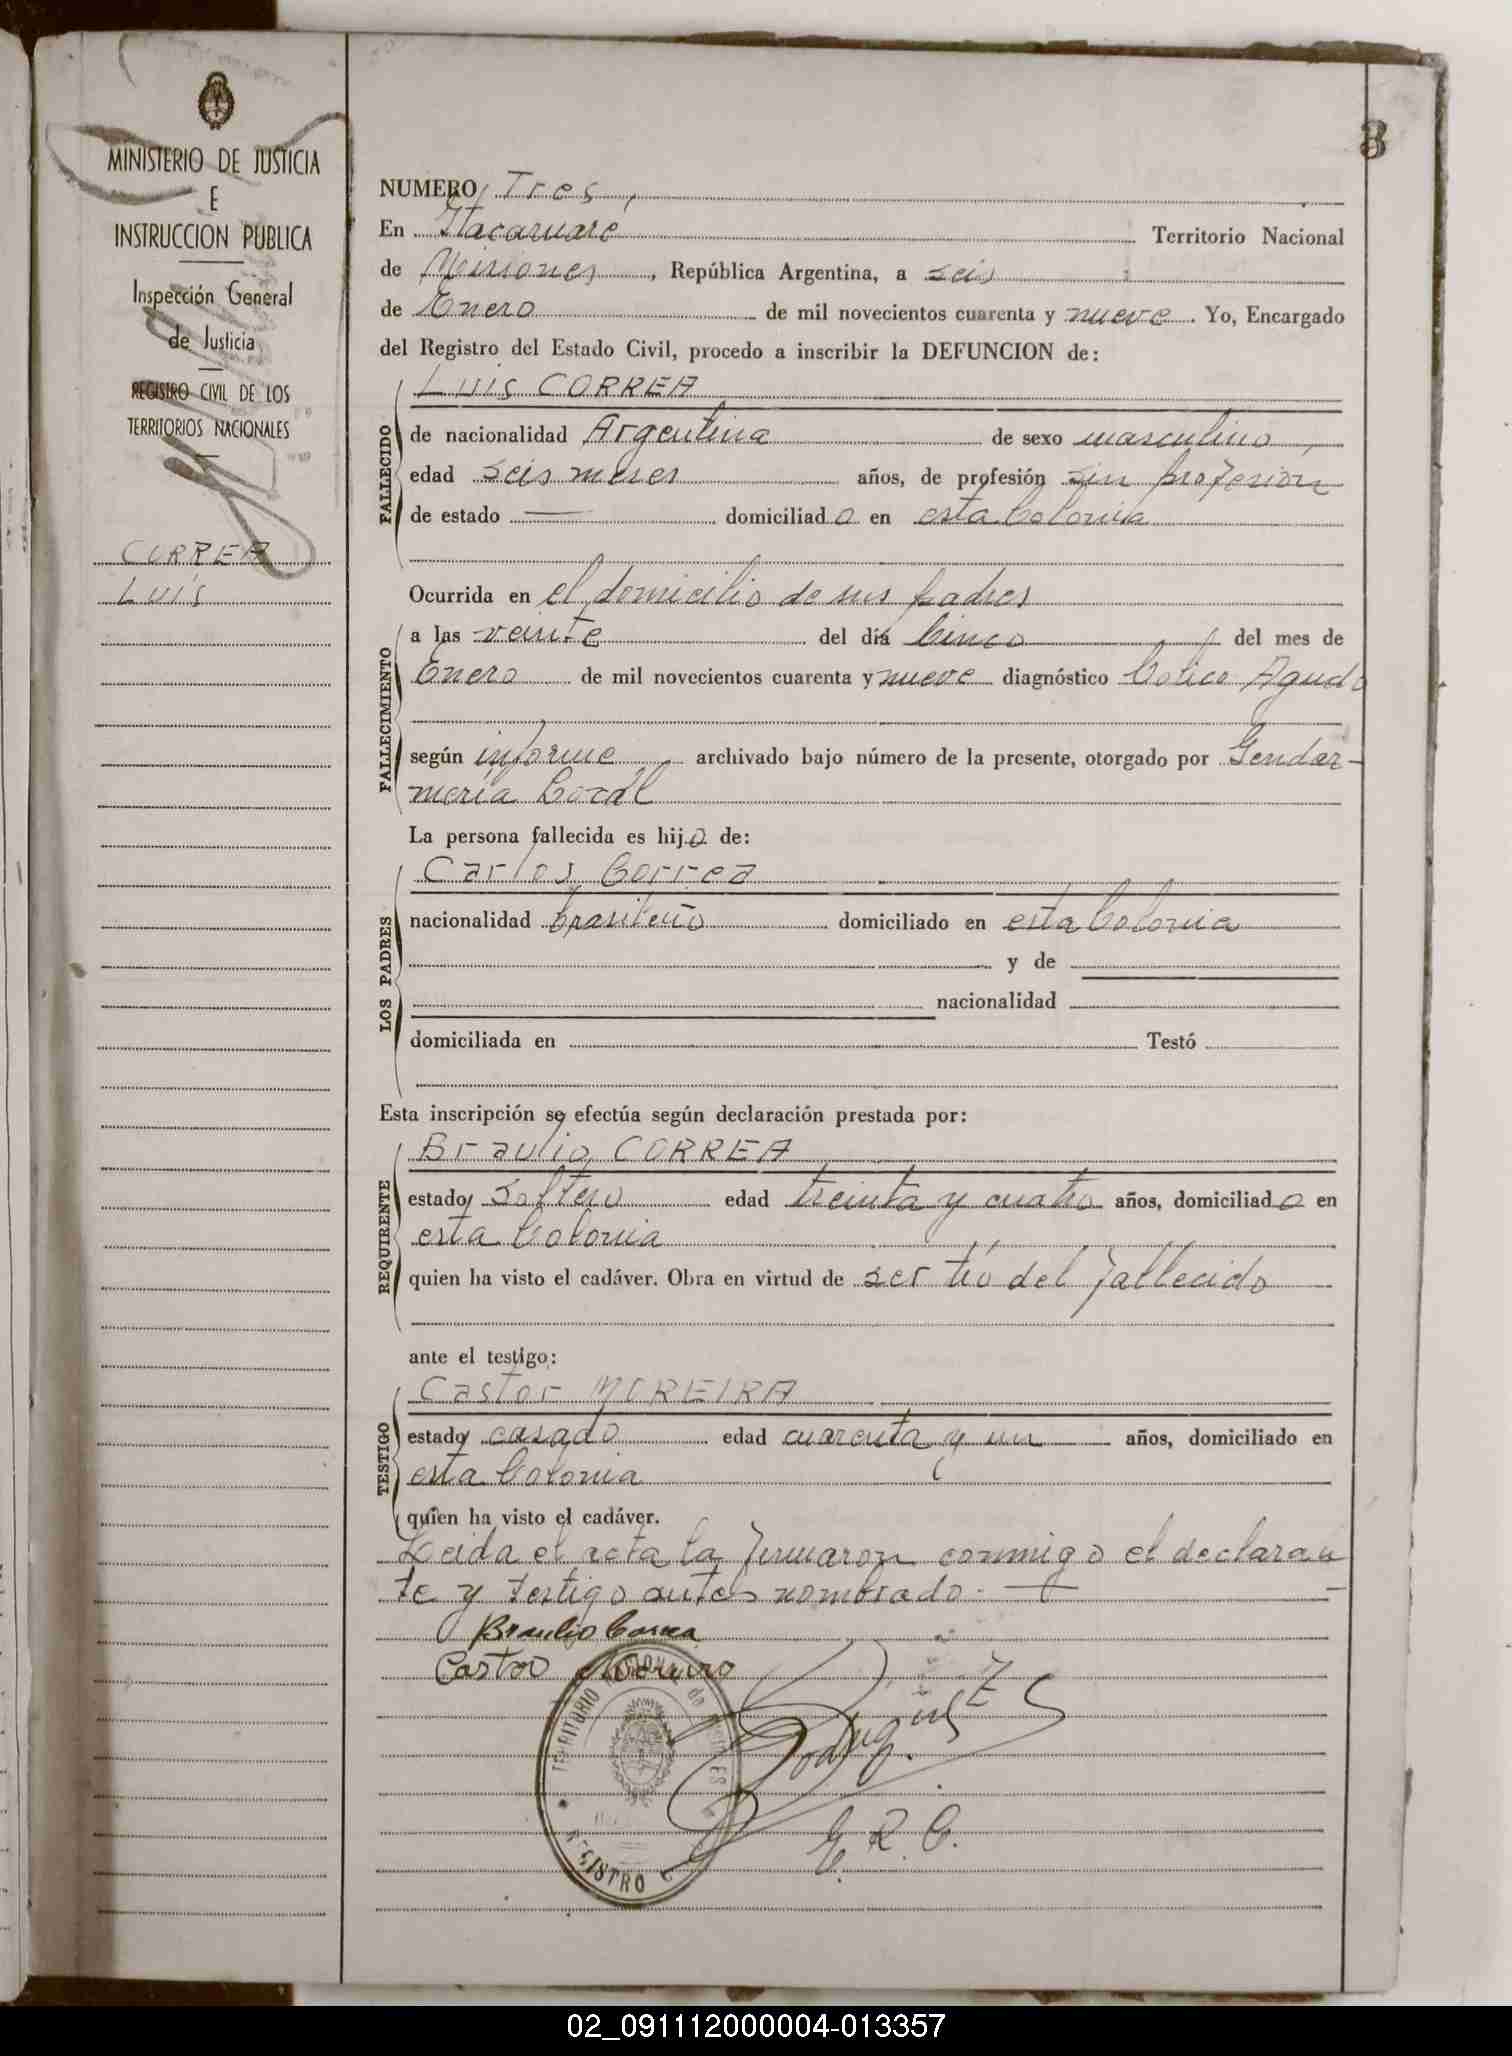 3
MINISTERIO DE JUSTICIA
E
INSTRUCCION PUBLICA
Inspección General
de Justicia
REGISTRO CIVIL DE LOS
TERRITORIOS NACIONALES
CORREA
Luis
NUMERO Tres,
En Itacaruaré Territorio Nacional
de Misiones, República Argentina, a seis
de Enero de mil novecientos cuarenta y nueve. Yo, Encargado
del Registro del Estado Civil, procedo a inscribir la DEFUNCION de:
FALLECIDO
Luis CORREA
de nacionalidad Argentina de sexo masculino,
edad seis meses años, de profesión sin profesión
de estado — domiciliado en esta Colonia
Ocurrida en el domicilio de sus padres
FALLECIMIENTO
a las veinte del día Cinco del mes de
Enero de mil novecientos cuarenta y nueve diagnóstico Colico Agudo
según informe archivado bajo número de la presente, otorgado por Gendar-
mería Local
La persona fallecida es hijo de:
LOS PADRES
Carlos Correa
nacionalidad brasileño domiciliado en esta Colonia
y de
nacionalidad
domiciliada en Testó
Esta inscripción se efectúa según declaración prestada por:
REQUIRENTE
Braulio CORREA
estado Soltero edad treinta y cuatro años, domiciliado en
esta Colonia
quien ha visto el cadáver. Obra en virtud de ser tío del fallecido
ante el testigo:
TESTIGO
Castor MOREIRA
estado casado edad cuarenta y un años, domiciliado en
esta Colonia
quien ha visto el cadáver.
Leida el acta la firmaron conmigo el declaran
te y testigo antes nombrado. —
Braulio Correa
Castor
TERRITORIO NACIONAL de MISIONES
REGISTRO
E. R. C.
02_091112000004-013357